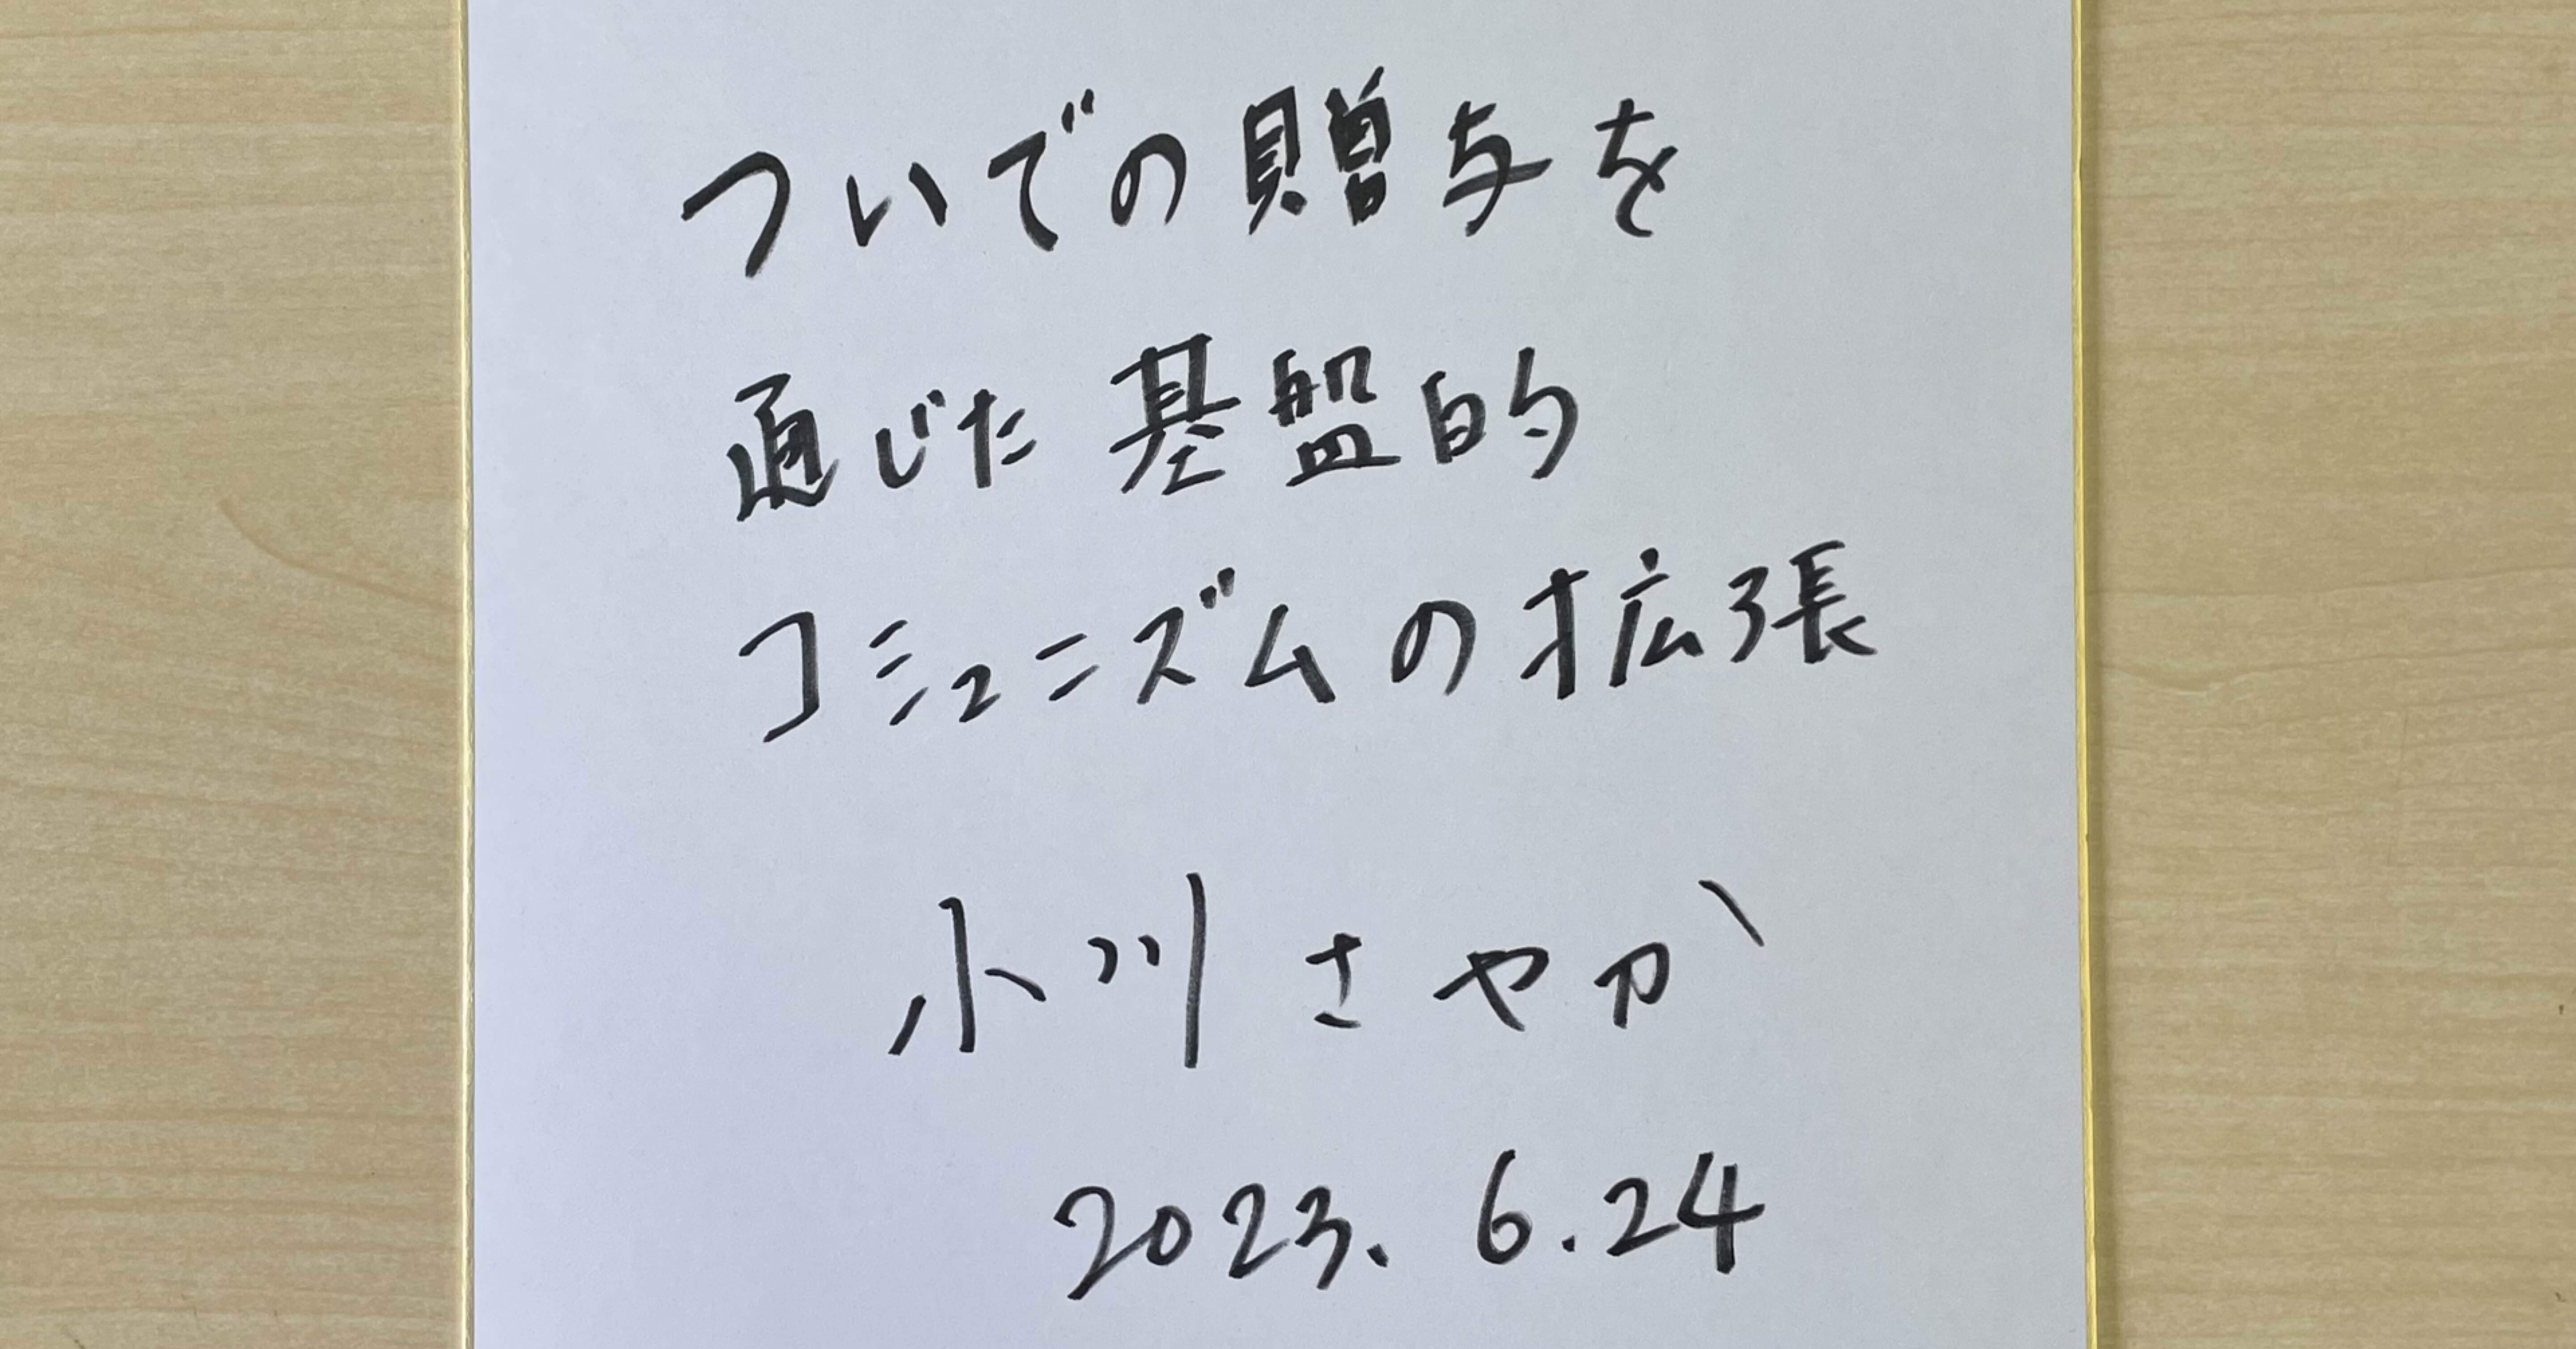 ついでの贈与を
通じた基盤的
コミュニズムの拡張
小川さやか
2023. 6.24